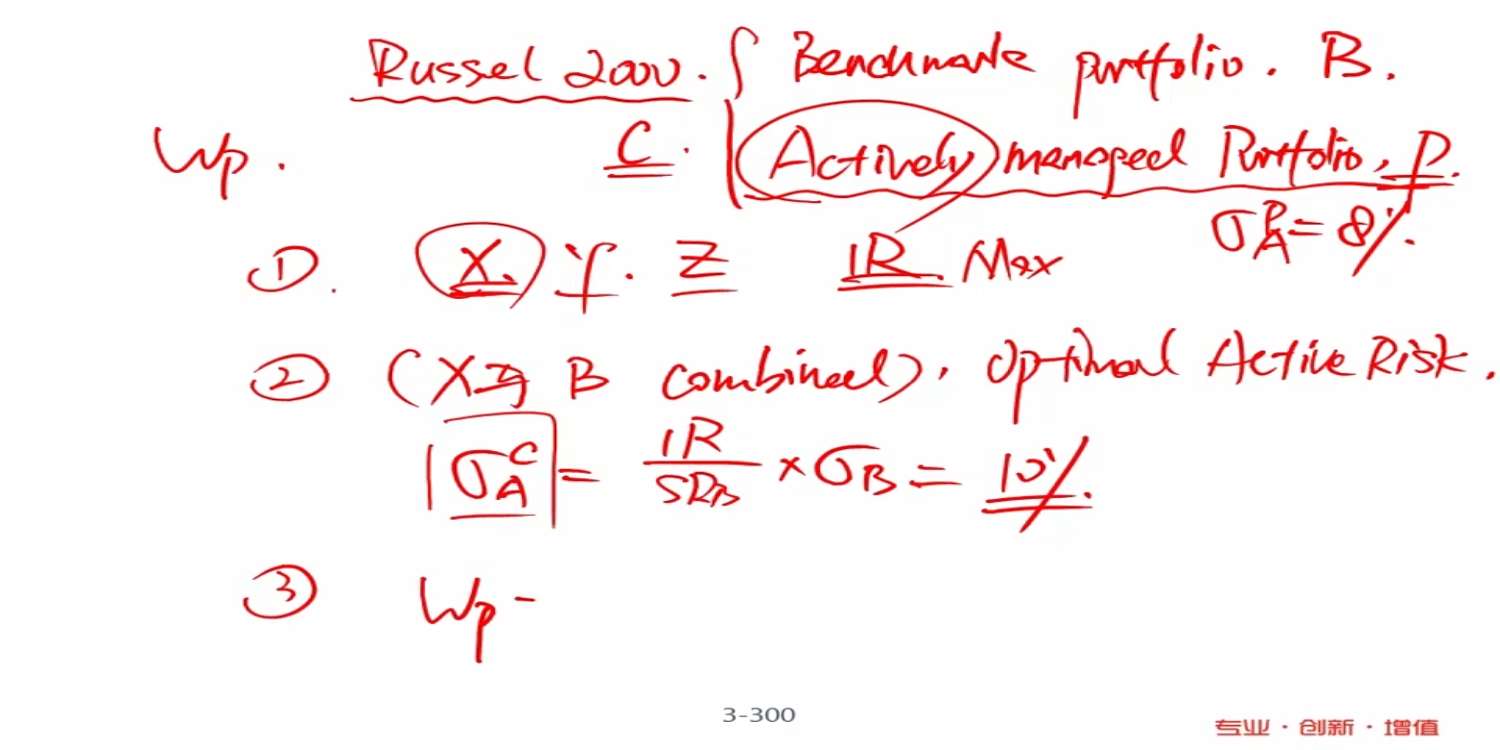 Russel 2000. { Benchmark portfolio. B.
Wp. C. Actively managed Portfolio, P.
σ_A^P = 8%.
① X. Y. Z IR. Max
② (X与 B combined), Optimal Active Risk.
σ_A^C = IR/SR_B × σ_B = 10%.
③ Wp -
3-300
专业·创新·增值